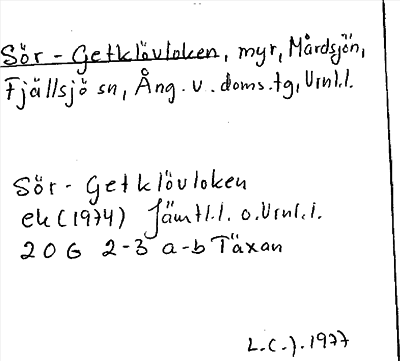 Sör-Getklövloken, myr, Mårdsjön,
Fjällsjö sn, Ång. v. doms.tg, Vrnl.l.
Sör-Getklövloken
ek (1974) Jämtl.l. o. Vrnl.l.
20 G 2-3 a-b Täxan
L.C-J. 1977